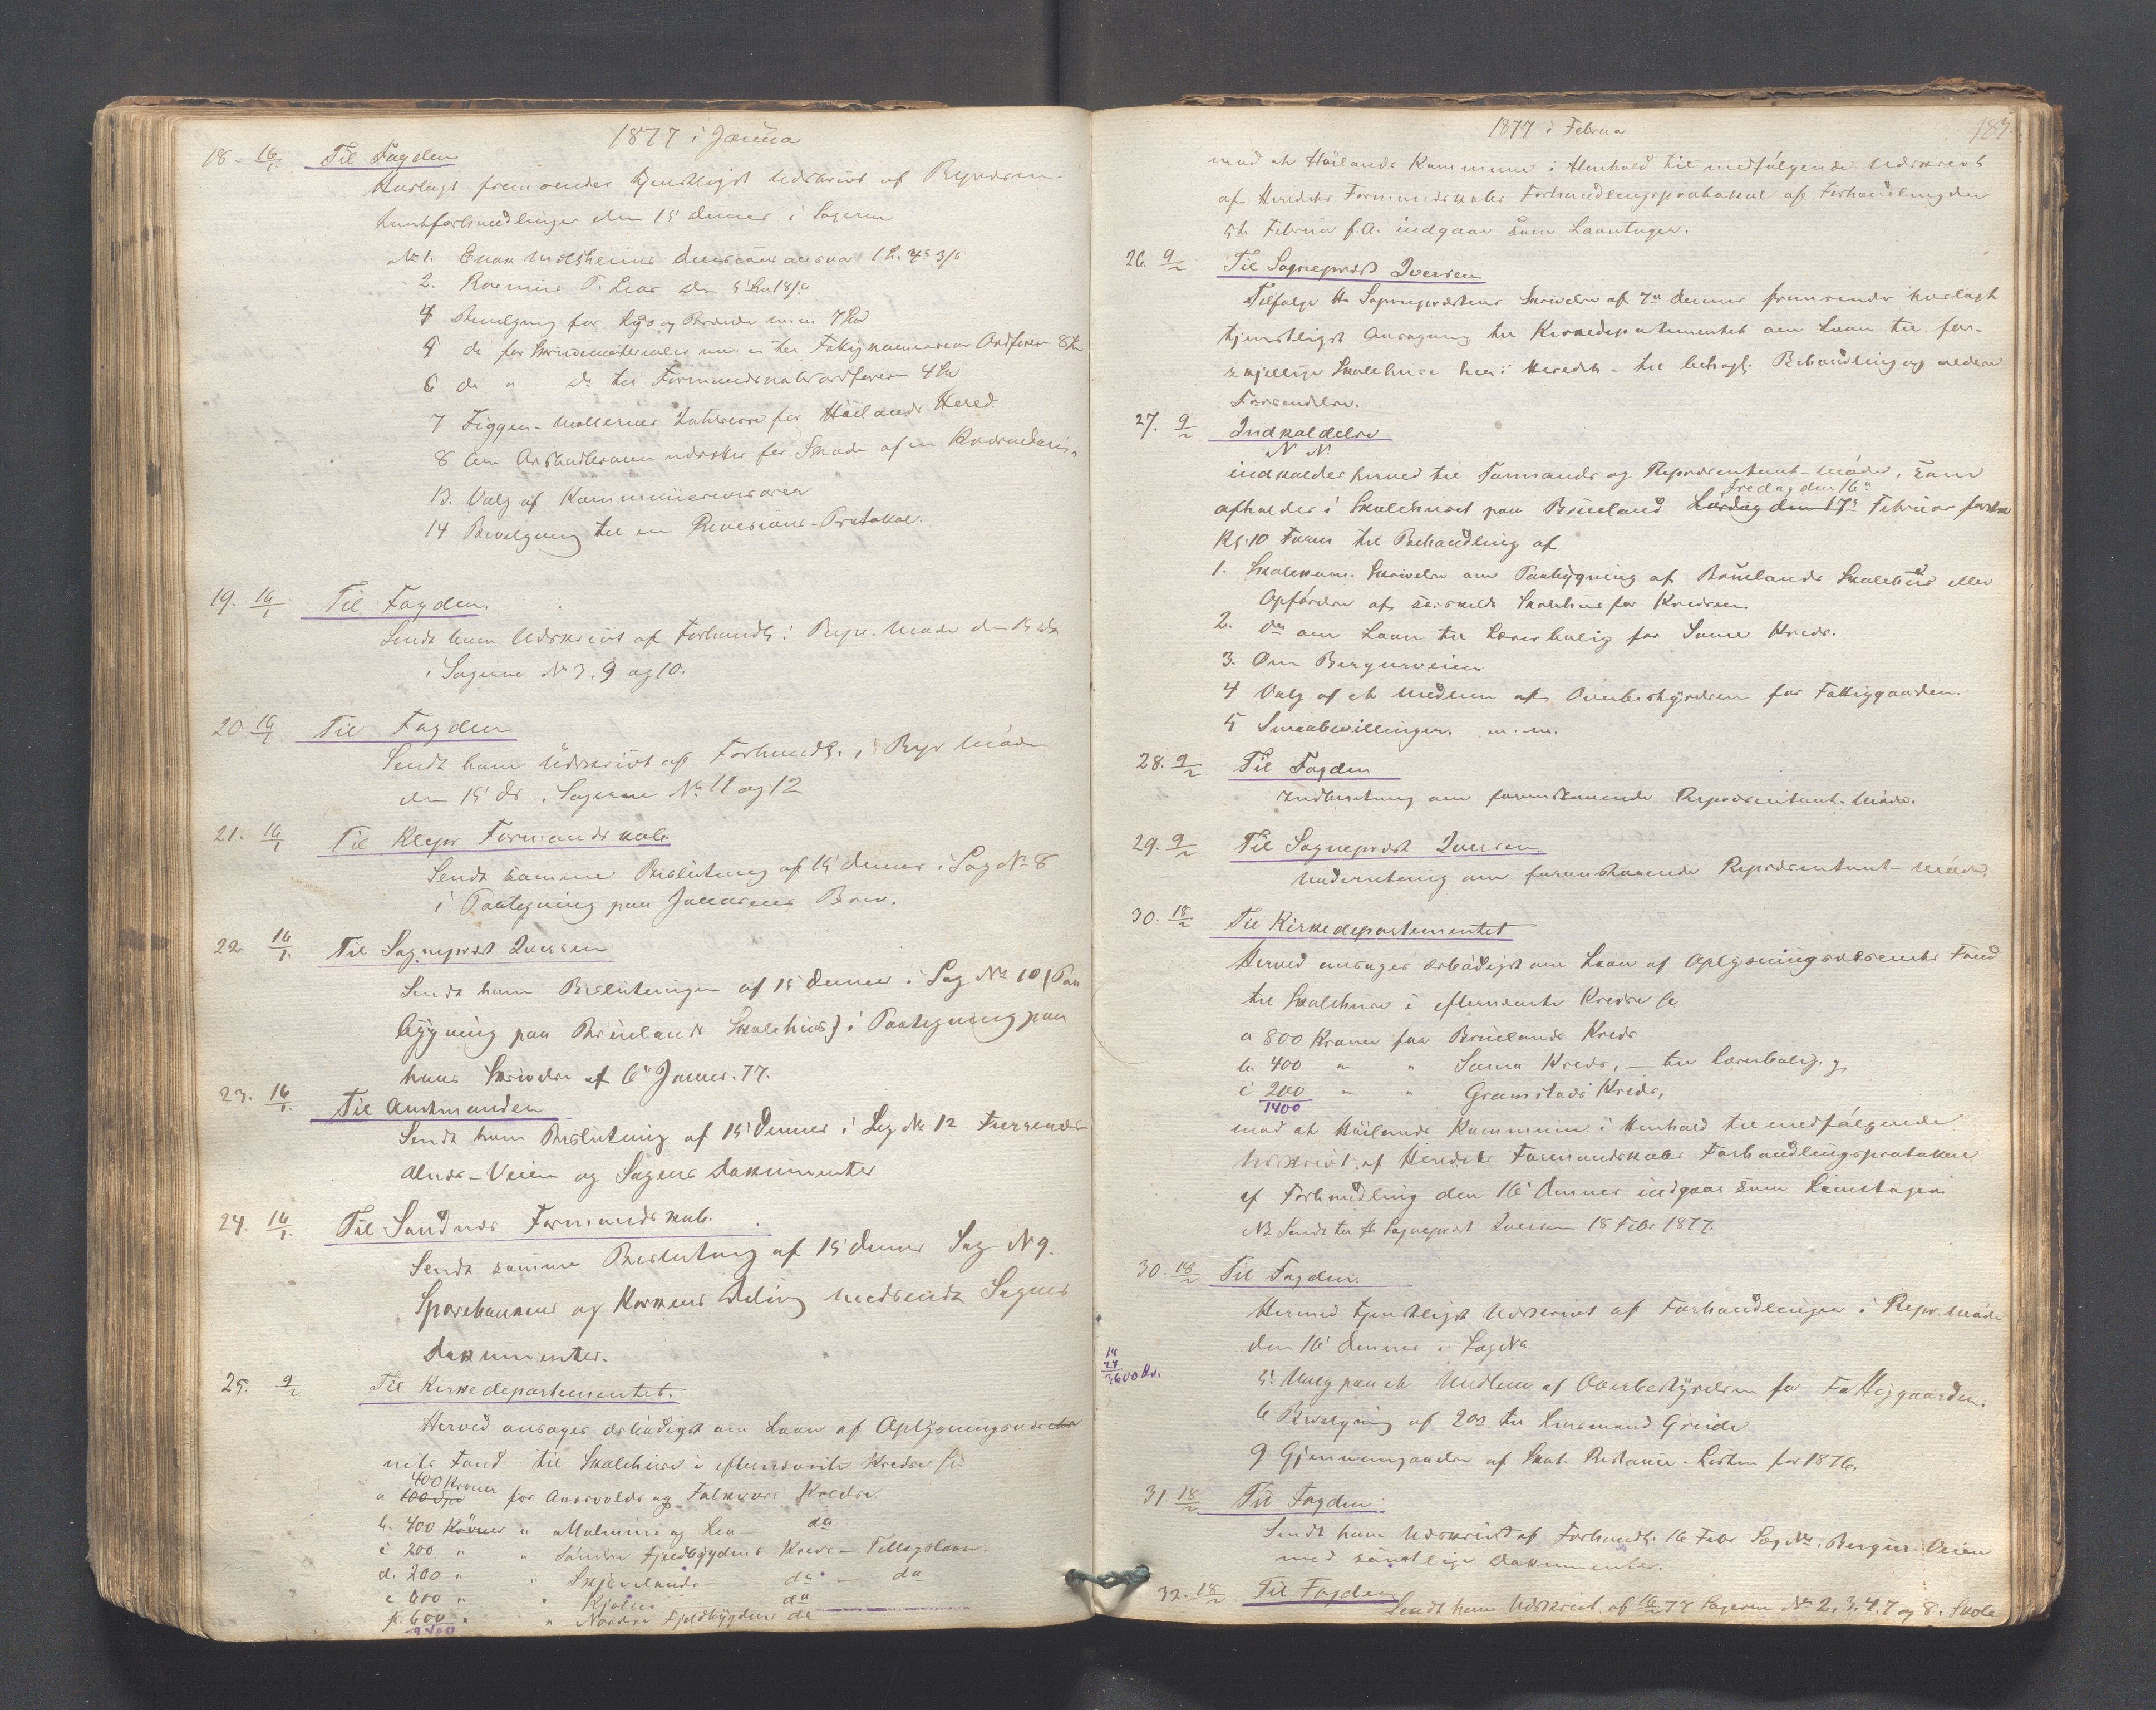 1877 i Janua
18. 16/1. Til Fogden
Hoslagt fremsendes tjenstligst Udskrivt af Repræsen-
tantforhandlinger den 15 dennes i Sagerne
No 1.
2.
4 Bevilgning for Lys og Brænde m. m.
5 do for Skrivematerialier m. m. til Fattigkommissions Ordfører 8
6 do " do til Formandskabsordfører 4
7 Figgen-Møllernes Interesse for Høilands Hered.
8 Om
13. Valg af Kommunerevisorer
14 Bevilgning til en Revisions-Protokol.
19. 16/1 Til Fogden.
Sendt ham Udskrivt af Forhandl. i Repr. Møde den 15 ds
i Sagerne No 3, 9 og 10.
20. 16/1 Til Fogden
Sendt ham Udskrivt af Forhandl. i Repr Møde
den 15 ds i Sagerne No 11 og 12
21. 16/1 Til Klepp Formandskab.
Sendt samme Beslutning af 15 dennes i Sag No 8
i Paategning paa Brev.
22. 16/1. Til Sogneprest Iversen
Sendt ham Beslutningen af 15 dennes i Sag No 10 (Paa
bygning paa Brueland Skolehus) i Paategning paa
hans Skrivelse af 6 Januar. 77.
23. 16/1. Til Amtmanden
Sendt ham Beslutning af 15 dennes i Sag No 12
Veien og Sagens Dokumenter
24. 16/1. Til Sandnes Formandskab.
Sendt samme Beslutning af 15 dennes Sag No 9.
Sparebankens og Deling medsendt Sagens
Dokumenter.
25. 9/2 Til Kirkedepartementet.
Herved ansøges ærbødigst om Laan af Oplysningsvæse
nets Fond til Skolehuse i efternævnte Kredse
400 Kroner
a for Austvolds og Kredse
b. 400 Kroner " og Lea do
c 200 " " Søndre Fjeldbygdens Kreds - Tillægslaan.
d. 200 " " Skjævelands do - do
e 600 " " do
f. 600 " " Nordre Fjeldbygdens do
2400
1877 i Februar
187.
mod at Høilands Kommune i Henhold til medfølgende Udskrivt
af Heredets Formandskabs Forhandlingsprotokol af Forhandling den
5te Februar f. A. indgaar som Laantager.
26. 9/2 Til Sogneprest Iversen
Tilfølge Hr Sogneprestens Skrivelse af 7 dennes fremsendes hoslagt
tjenstligst Ansøgning til Kirkedepartementet om Laan til for-
skjellige Skolehuse her i Heredet - til behagl. Behandling og videre
Forsendelse.
27. 9/2 Indkaldelse
N N
indkaldes herved til Formands og Repræsentant-Møde, som
Fredag den 16
afholdes i Skolehuset paa Brueland Lørdag den 17 Februar
Kl. 10 Form til Behandling af
1. Skolekom. Skrivelse om Paabygning af Bruelands Skolehus eller
Opførelse af særskilt Skolehus for Kredsen.
2. do om Laan til Lærerbolig for Samme Kreds.
3. Om Bergsveien
4 Valg af et Medlem af Overbestyrelsen for Fattiggaarden.
5 Smaabevillinger m. m.
28. 9/2 Til Fogden
Indberetning om foranstaaende Repræsentant-Møde.
29. 9/2 Til Sogneprest Iversen
Underretning om foranstaaende Repræsentant-Møde.
30. 18/2 Til Kirkedepartementet
Herved ansøges ærbødigst om Laan af Oplysningsvæsenets Fond
til Skolehuse i efternævnte Kredse
a 800 Kroner for Bruelands Kreds
b. 400 " " Samme Kreds, - til Lærerbolig. og
c 200 " " Gramstads Kreds,
1400
mod at Høilands Kommune i Henhold til medfølgende
Udskrivt af Heredets Formandskabs Forhandlingsprotokol
af Forhandling den 16 dennes indgaar som Laantager.
NB Sendt til Hr Sogneprest Iversen 18 Febr 1877.
30. 18/2 Til Fogden.
Hermed tjenstligst Udskrivt af Forhandlinger i Repr Møde
den 16 dennes i Sag No
14
24
3600 Kr.
5 Valg paa et Medlem af Overbestyrelsen for Fattiggaarden.
6 Bevilgning af til Lensmand Grude
9 Gjennemgaaelse af Skat-Restance-Listen for 1876.
31. 18/2 Til Fogden
Sendt ham Udskrivt af Forhandl. 16 Febr Sag No. Veien
med samtlige Dokumenter.
32. 18/2 Til Fogden
Sendt ham Udskrivt af 16/2 77 Sagerne No 2, 3, 4, 7 og 8. Skole